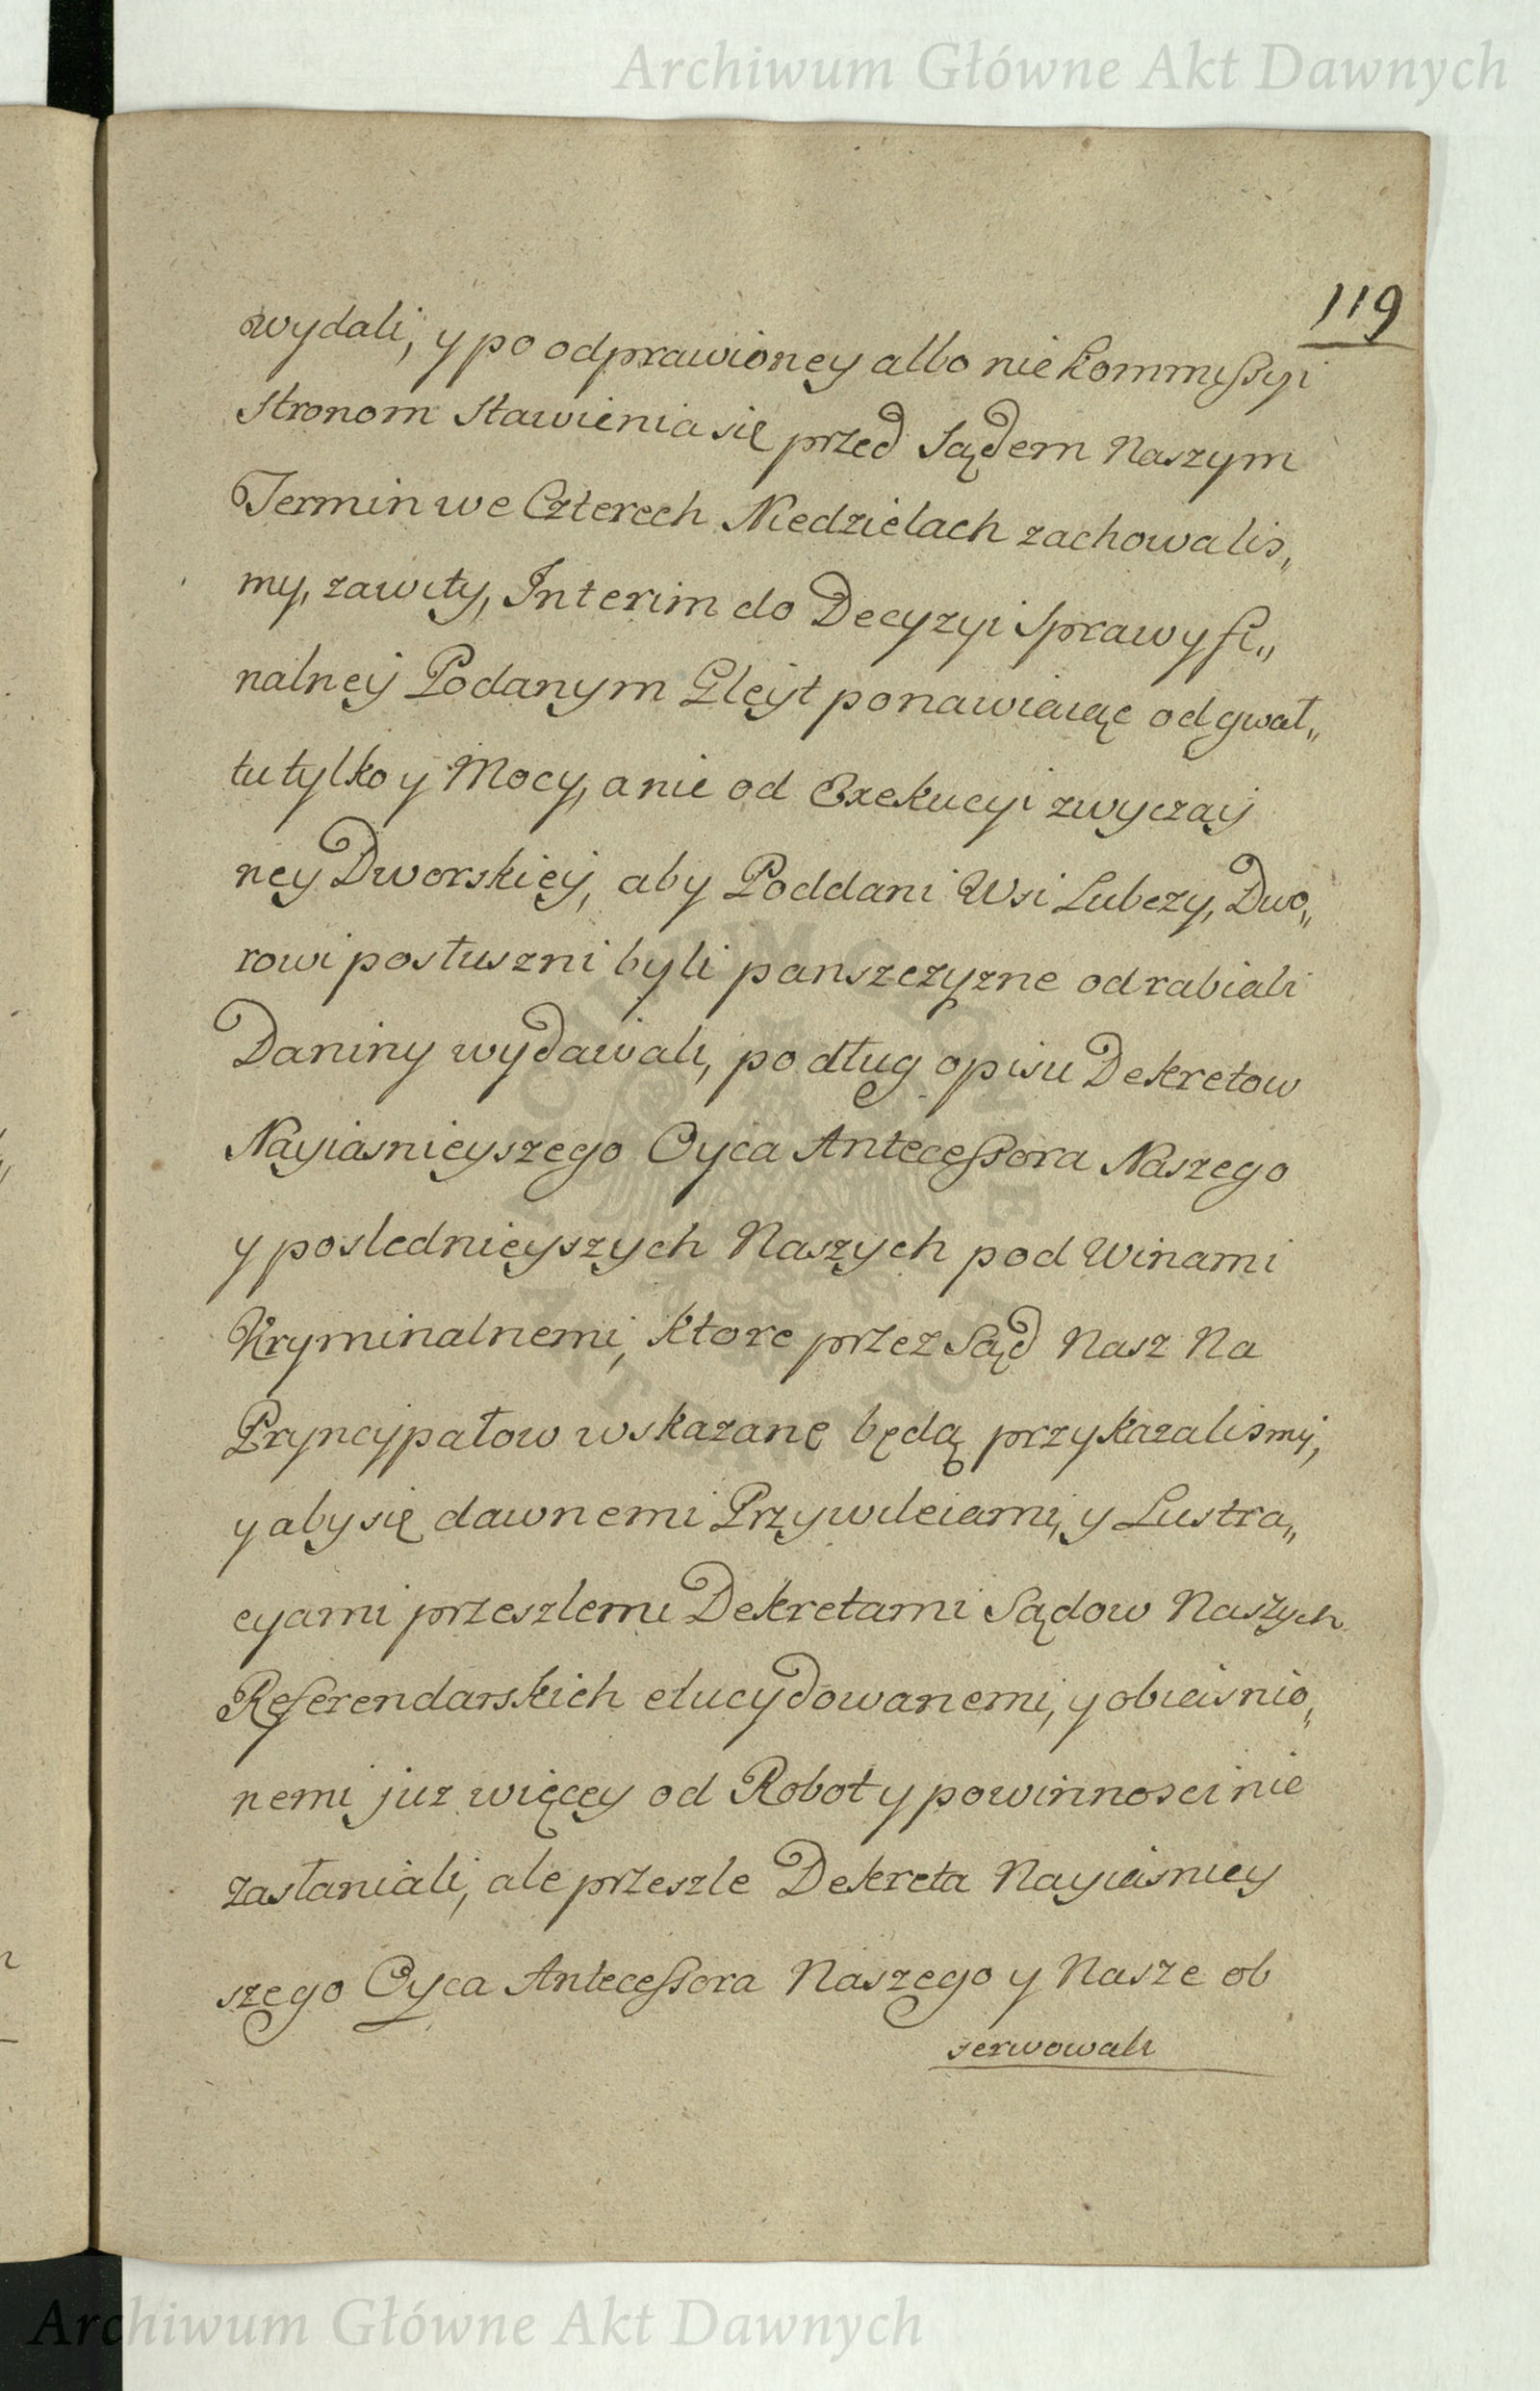 Archiwum Główne Akt Dawnych
119
wydali, y po odprawioney albo nie kommissyi
stronom stawienia się przed Sądem Naszym
Termin we Czterech Niedzielach zachowalis„
my, zawity, Interim do Decyzyi sprawy fi„
nalney Podanym Gleyt ponawiaiąc od gwał„
tu tylko y Mocy, a nie od Exekucyi zwyczay
ney Dworskiey, aby Poddani Wsi Lubczy, Dwo„
rowi posłuszni byli panszczyzne odrabiali
Daniny wydawali, podług opisu Dekretow
Nayiasnieyszego Oyca Antecessora Naszego
y poslednieyszych Naszych pod Winami
Kryminalnemi, ktore przez Sąd Nasz Na
Pryncypałow wskazane będą przykazalismy,
y aby się dawnemi Przywileiami, y Lustra„
cyami przeszlemi Dekretami Sądow Naszych
Referendarskich elucydowanemi, y obiasnio„
nemi juz więcey od Robot y powinnosci nie
zasłaniali, ale przeszle Dekreta Nayiasniey
szego Oyca Antecessora Naszego y Nasze ob
serwowali
Archiwum Główne Akt Dawnych